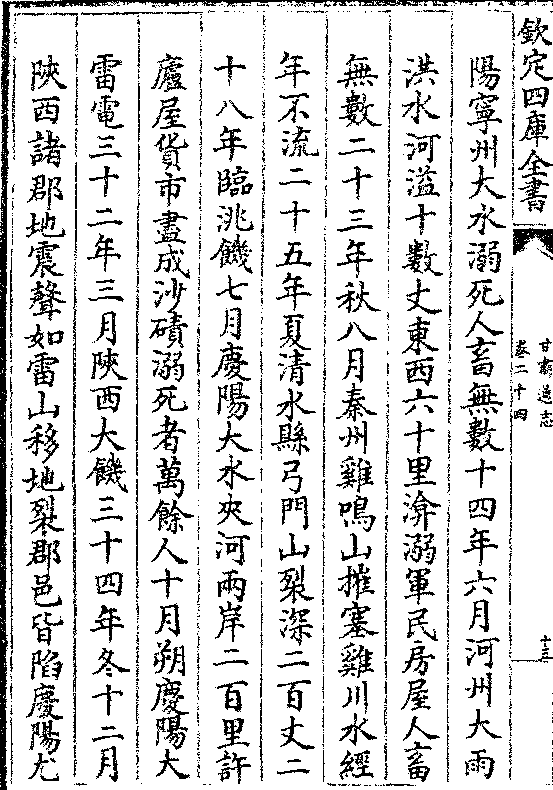 欽定四庫全書
甘肅通志
卷二十四
十三
陽寧州大水溺死人畜無數十四年六月河州大雨
洪水河溢十數丈東西六十里渰溺軍民房屋人畜
無數二十三年秋八月秦州雞鳴山摧塞雞川水經
年不流二十五年夏清水縣弓門山裂深二百丈二
十八年臨洮饑七月慶陽大水夾河兩岸二百里許
廬屋貨市盡成沙磧溺死者萬餘人十月朔慶陽大
雷電三十二年三月陝西大饑三十四年冬十二月
陝西諸郡地震聲如雷山移地裂郡邑皆陷慶陽尤